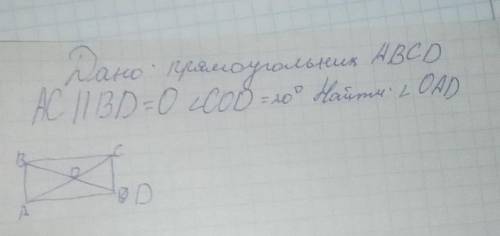 Дано: прямоугольник ABCD
AC || BD = O ∠COD = 20° Найти: ∠OAD
B C
O
A D